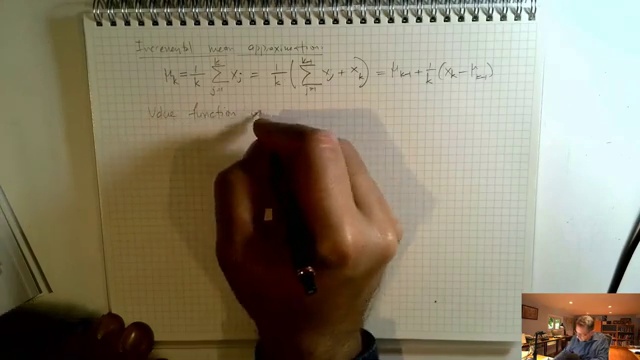 Incremental mean approximation:
μ_k = 1/k Σ_{j=1}^{k} x_j = 1/k ( Σ_{j=1}^{k-1} x_j + x_k ) = μ_{k-1} + 1/k ( x_k - μ_{k-1} )
Value function